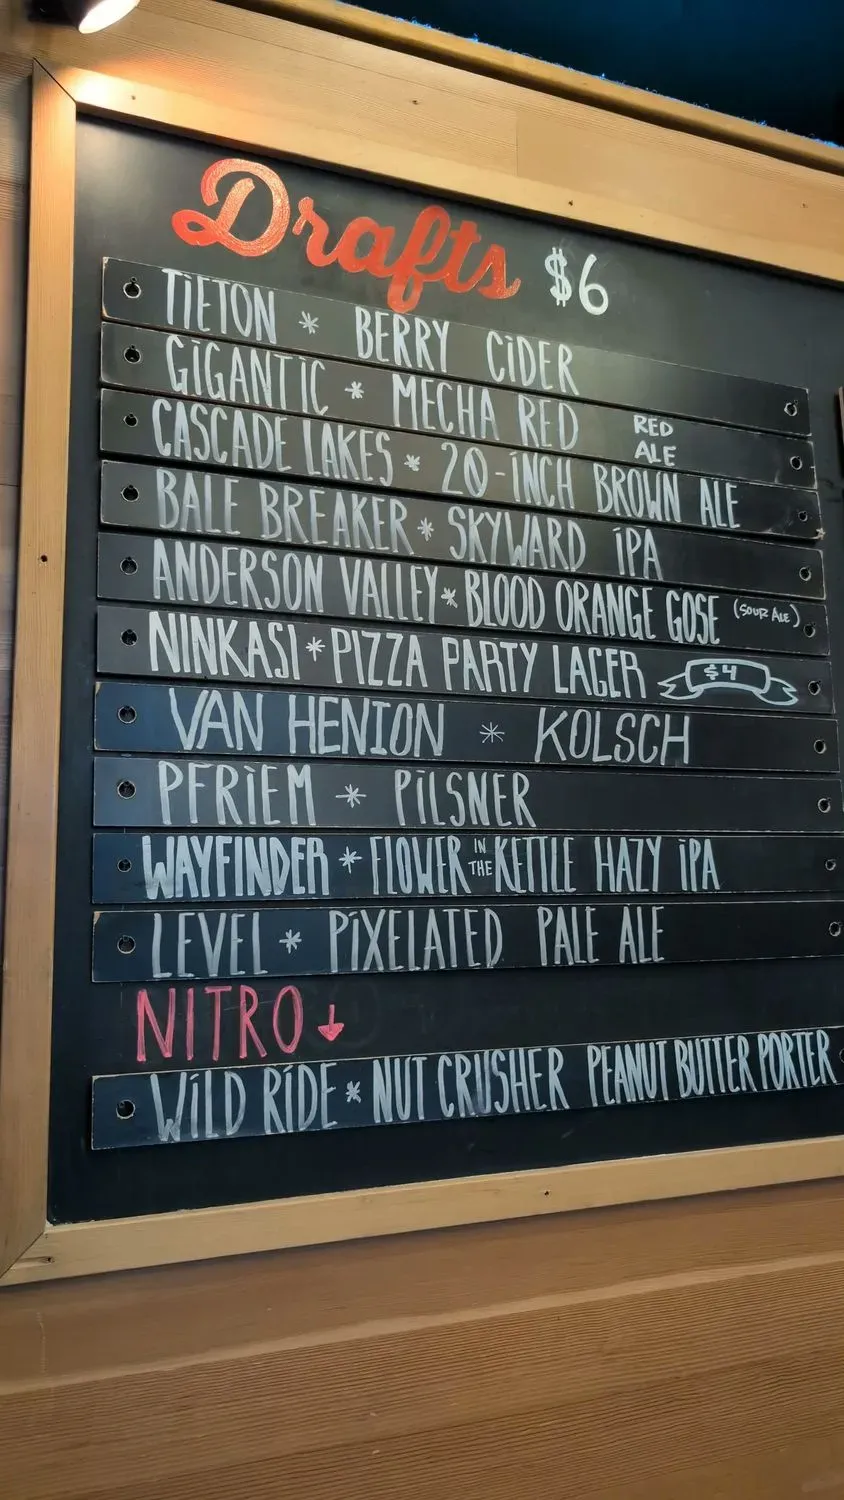 Drafts $6
TIETON * BERRY CIDER
GIGANTIC * MECHA RED RED ALE
CASCADE LAKES * 20-INCH BROWN ALE
BALE BREAKER * SKYWARD IPA
ANDERSON VALLEY * BLOOD ORANGE GOSE (SOUR ALE)
NINKASI * PIZZA PARTY LAGER $4
VAN HENION * KOLSCH
PFRIEM * PILSNER
WAYFINDER * FLOWER IN THE KETTLE HAZY IPA
LEVEL * PIXELATED PALE ALE
NITRO ↓
WILD RIDE * NUT CRUSHER PEANUT BUTTER PORTER